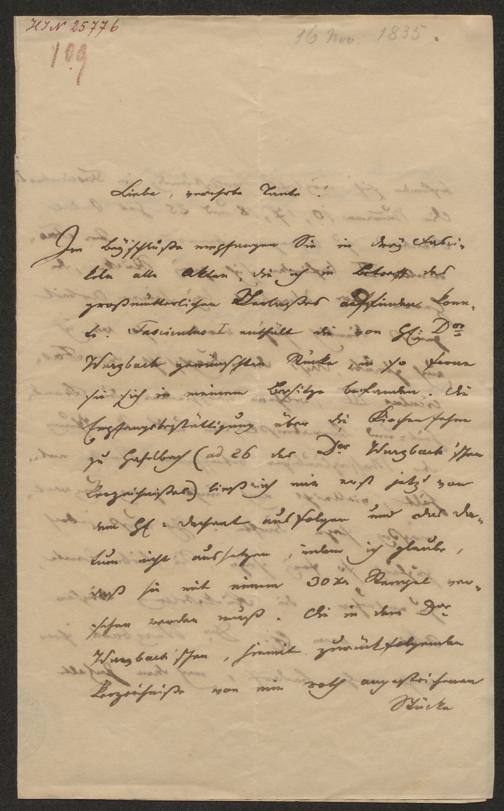 HIN 25776
109
16 Nov. 1835.
Liebe, verehrte Tante!
Im Beyschluße empfangen Sie in drey Fasci-
keln alle Akten, die ich in Betreff des
großmütterlichen Verlaßes auffinden konn-
te. Fascikel enthält die von H: Dor
Wurzbach gewünschten Stücke in so ferne
sie sich in meinem Besitze befanden. Die
Empfangsbestättigung über die Kirchenfahne
zu Haselbach (ad 26 des Dor Wurzbach'schen
Verzeichnißes) ließ ich mir erst jetzt vom
H: Dechant ausfolgen und das Da-
tum nicht aussetzen, indem ich glaube,
daß sie mit einem 30 xr Stempel ver-
sehen werden muß. Die in dem Dor
Wurzbach'schen, hiemit zurückfolgenden
Verzeichniße von mir roth angestrichenen
Stücke